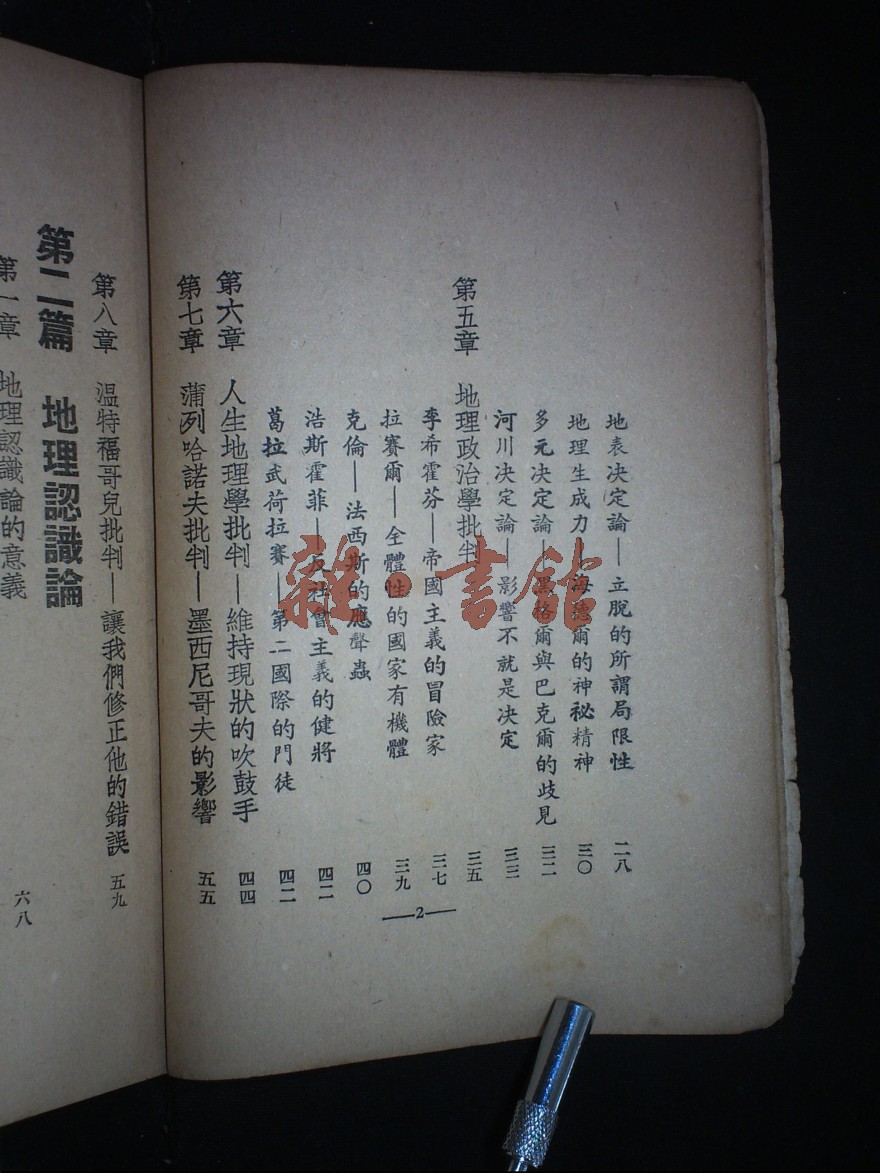 地表决定論——立脫的所謂局限性 二八
地理生成力——海德爾的神祕精神 三〇
多元决定論——黑格爾與巴克爾的歧見 三二
河川决定論——影響不就是决定 三三
第五章 地理政治學批判 三五
李希霍芬——帝國主義的冒險家 三七
拉賽爾——全體性的國家有機體 三九
克倫——法西斯的應聲蟲 四〇
浩斯霍菲——反社會主義的健將 四二
葛拉武荷拉賽——第二國際的門徒 四二
第六章 人生地理學批判——維持現狀的吹鼓手 四四
第七章 蒲列哈諾夫批判——墨西尼哥夫的影響 五五
——2——
第八章 溫特福哥兒批判——讓我們修正他的錯誤 五九
第二篇 地理認識論
第一章 地理認識論的意義 六八
雜·書館